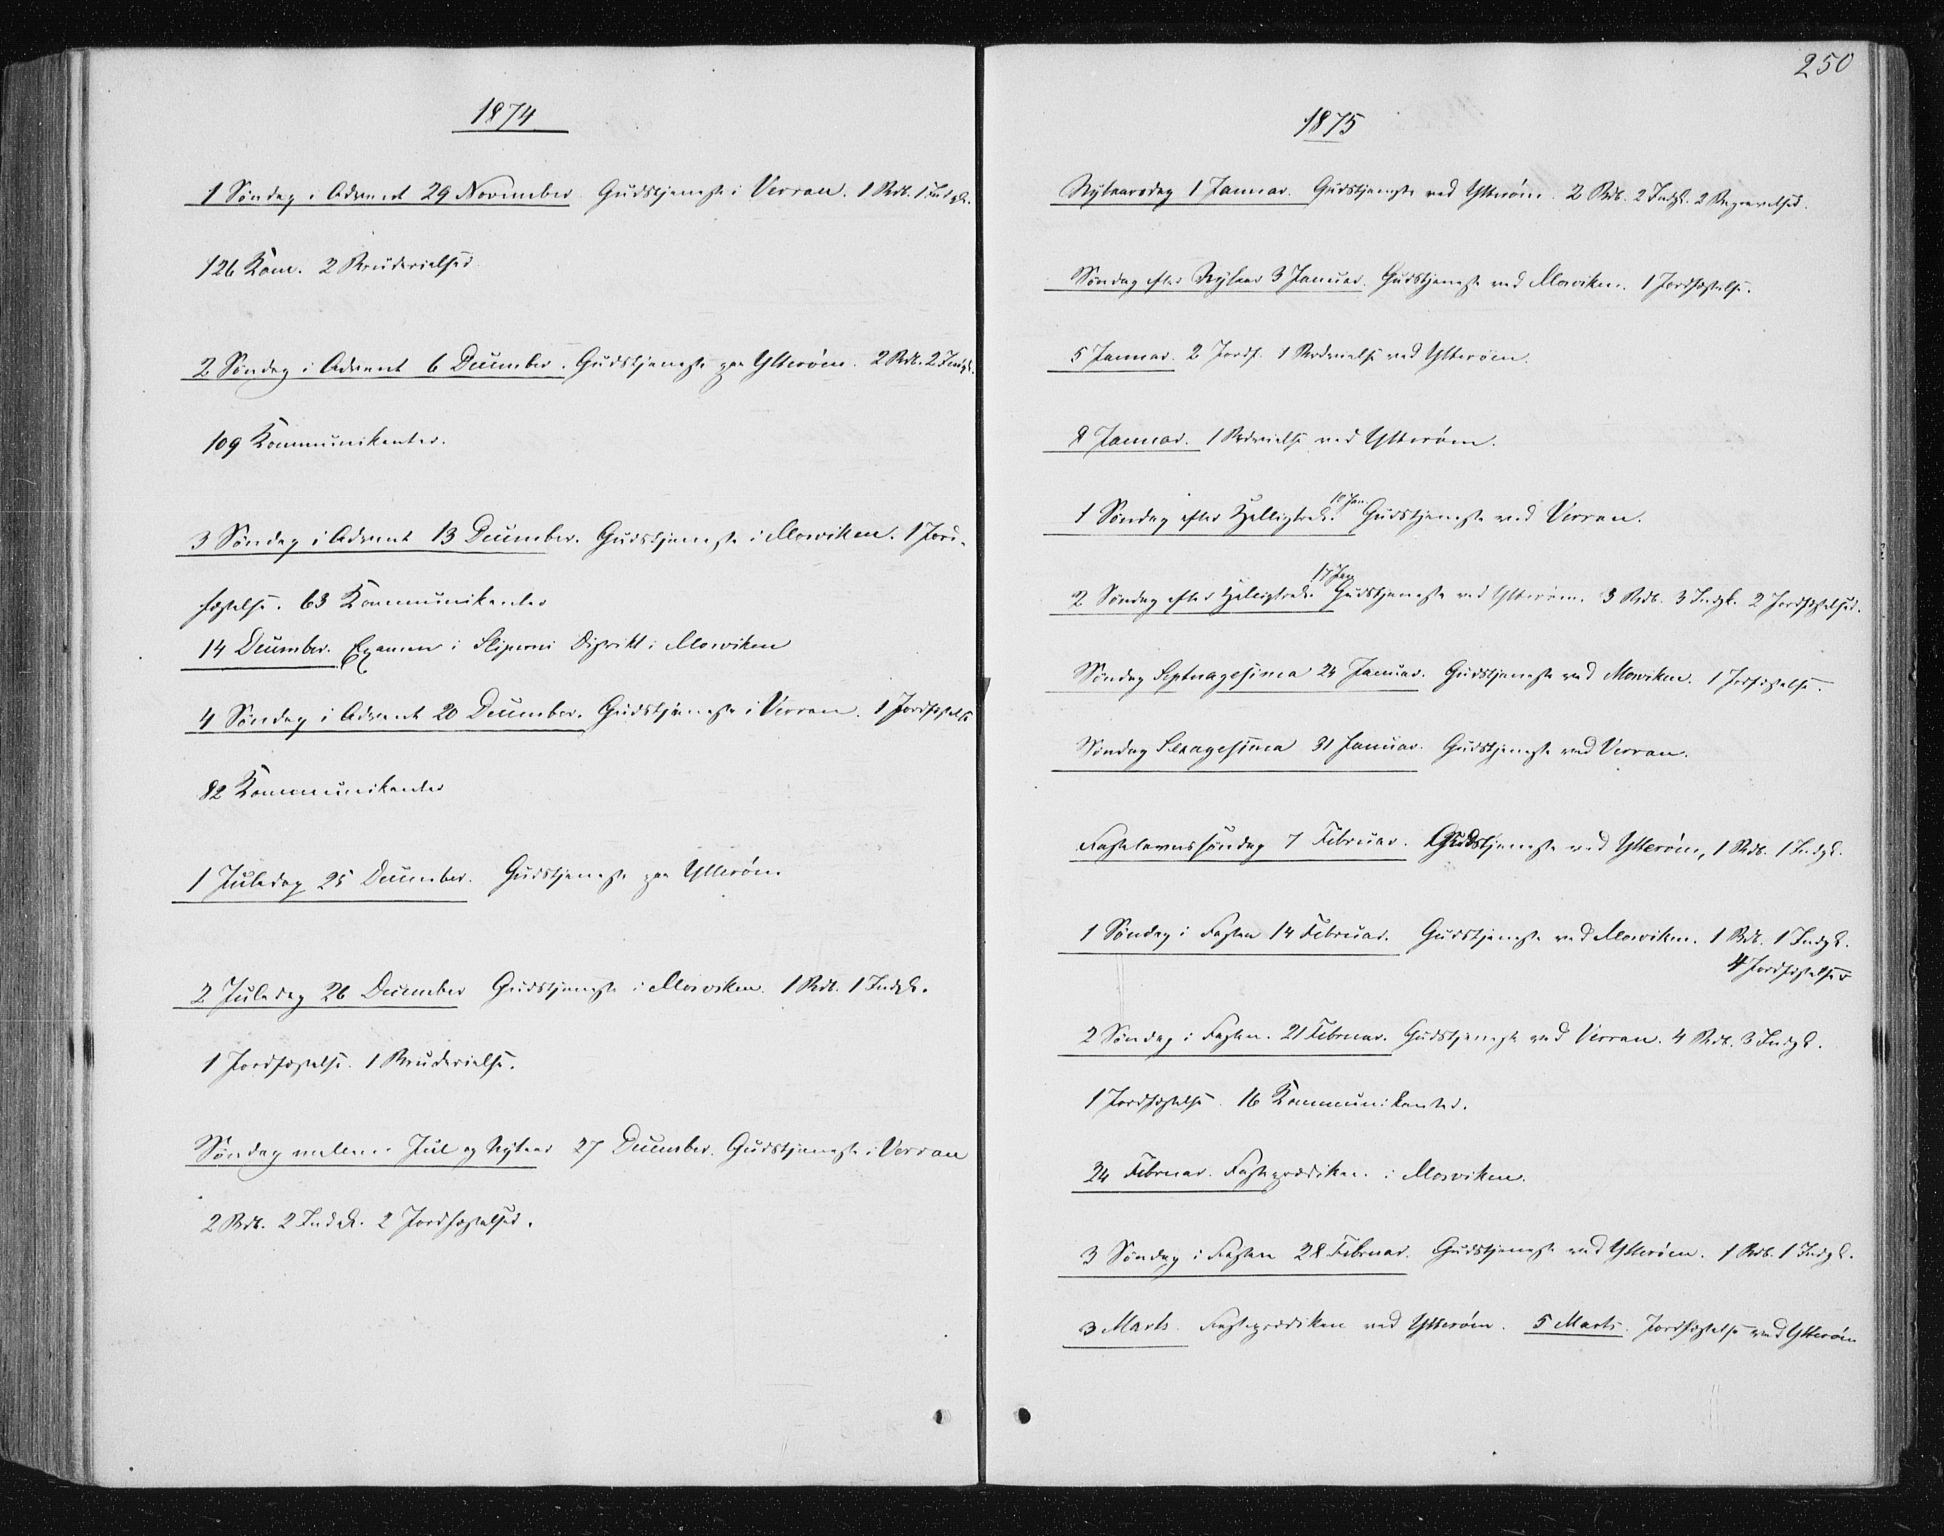 1874
1 Søndag i Advent 29 November. Gudstjeneste i Verran. 1 Rdb. 1 Indgk.
126 Kom. 2 Brudevielser
2 Søndag i Advent 6 December. Gudstjeneste paa Ytterøen. 2 Rdb. 2 Indgk.
109 Kommunikanter.
3 Søndag i Advent 13 December. Gudstjeneste i Mosviken. 1 Jord-
fæstelse. 63 Kommunikanter
14 December. Examen i Distrikt i Mosviken
4 Søndag i Advent 20 December. Gudstjeneste i Verran. 1 Jordfæstelse
82 Kommunikanter
1 Juledag 25 December. Gudstjeneste paa Ytterøen
2 Juledag 26 December Gudstjeneste i Mosviken. 1 Rdb. 1 Indgk.
1 Jordfæstelse. 1 Brudevielse.
Søndag mellem Jul og Nytaar 27 December. Gudstjeneste i Verran
2 Rdb. 2 Indgk. 2 Jordfæstelser.
250
1875
Nytaarsdag 1 Januar. Gudstjeneste ved Ytterøen. 2 Rdb. 2 Indgk. 2 Begravelser.
Søndag efter Nytaar 3 Januar. Gudstjeneste ved Mosviken. 1 Jordfæstelse.
5 Januar. 2 Jordf. 1 Brdvielse ved Ytterøen.
8 Januar. 1 Brdvielse ved Ytterøen.
1 Søndag efter Helligtrek. 10 Jan. Gudstjeneste ved Verran.
2 Søndag efter Helligtrek. 17 Jan Gudstjeneste ved Ytterøen. 3 Rdb. 3 Indgk. 2 Jordfæstelser.
Søndag Septuagesima 24 Januar. Gudstjeneste ved Mosviken. 1 Jordfæstelse.
Søndag Sexagesima 31 Januar. Gudstjeneste ved Verran.
Fastelavnssøndag 7 Februar. Gudstjeneste ved Ytterøen, 1 Rdb. 1 Indgk.
1 Søndag i Fasten 14 Februar. Gudstjeneste ved Mosviken. 1 Rdb. 1 Indgk.
4 Jordfæstelser
2 Søndag i Fasten. 21 Februar. Gudstjeneste ved Verran. 4 Rdb. 3 Indgk.
1 Jordfæstelse. 16 Kommunikanter.
24 Februar. Fasteprædiken i Mosviken.
3 Søndag i Fasten 28 Februar. Gudstjeneste ved Ytterøen. 1 Rdb. 1 Indgk.
3 Marts. Fasteprædiken ved Ytterøen. 5 Marts. Jordfæstelse ved Ytterøen